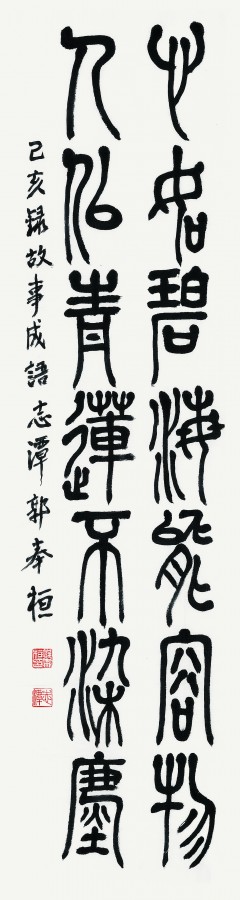 心如碧海能容物
人似青蓮不染塵
己亥錄故事成語志潭郭奉桓